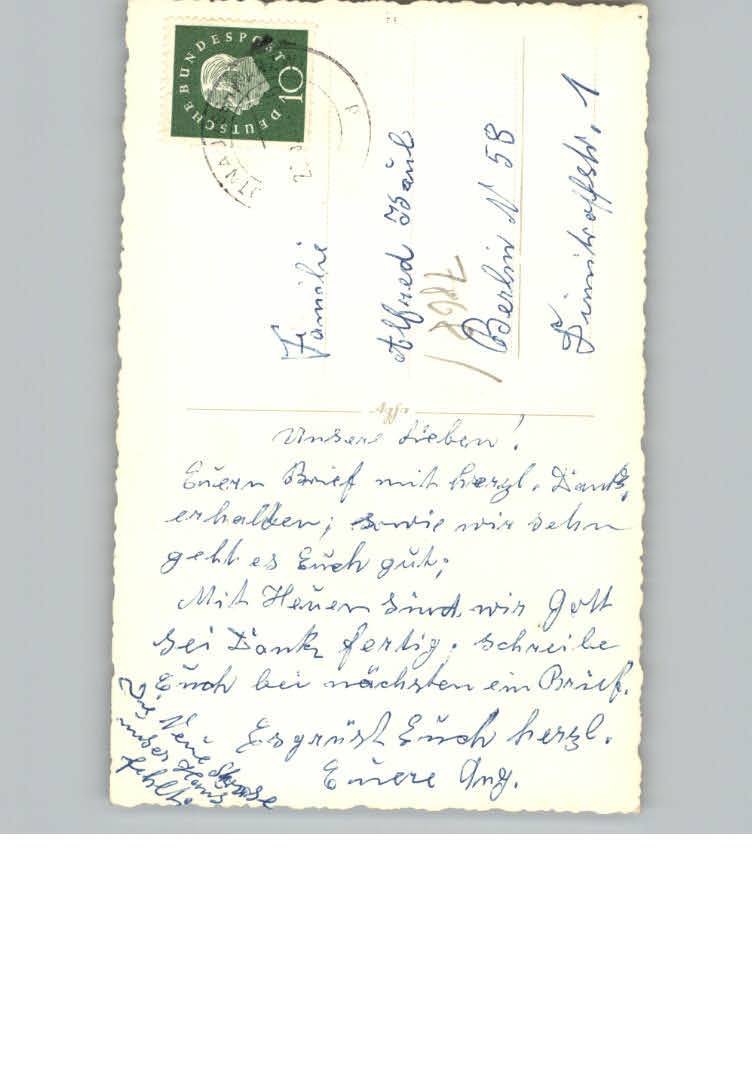 DEUTSCHE BUNDESPOST
10
Familie
Alfred
Berlin N 58
Dimitroffstr. 1
Agfa
Unsere Lieben!
Euern Brief mit herzl. Dank
erhalten; sowie wir sehn
geht es Euch gut;
Mit Heuen sind wir Gott
sei Dank fertig; schreibe
Euch bei nächsten ein Brief.
Es grüßt Euch herzl.
Euere Ang.
Die Neue Strase
unser Haus
fehlt.